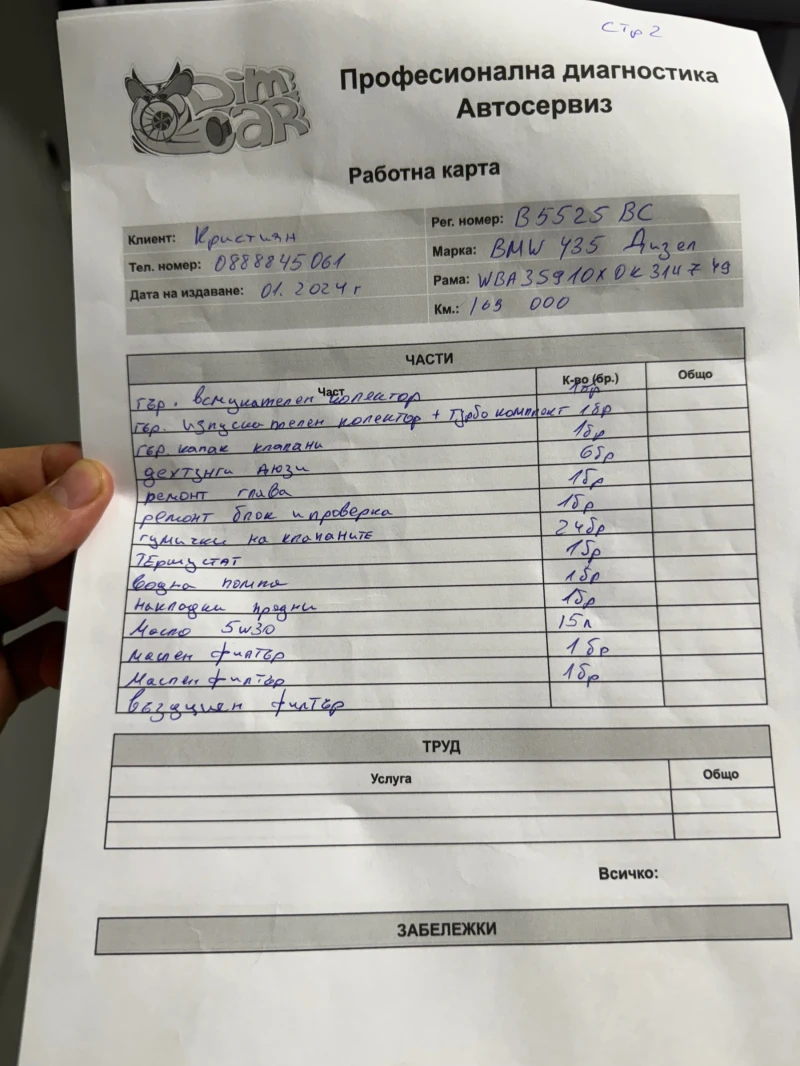 стр 2
Dim Car
Професионална диагностика
Автосервиз
Работна карта
Клиент: Кристиян
Тел. номер: 0888845061
Дата на издаване: 01. 2024 г
Рег. номер: В 5525 ВС
Марка: BMW 435 Дизел
Рама: WBA3S910X0K314749
Км.: 169 000
ЧАСТИ
Част К-во (бр.) Общо
гър. всмукателен колектор 1бр
гър. изпускателен колектор + турбо комплект 1бр
гър. капак клапани 1бр
дюзи 6бр
ремонт глава 1бр
ремонт блок и проверка 1бр
гумички на клапаните 24бр
Термустат 1бр
водна помпа 1бр
накладки предни 1бр
Масло 5w30 15л
маслен филтър 1бр
Маслен филтър 1бр
въздушен филтър
ТРУД
Услуга Общо
Всичко:
ЗАБЕЛЕЖКИ